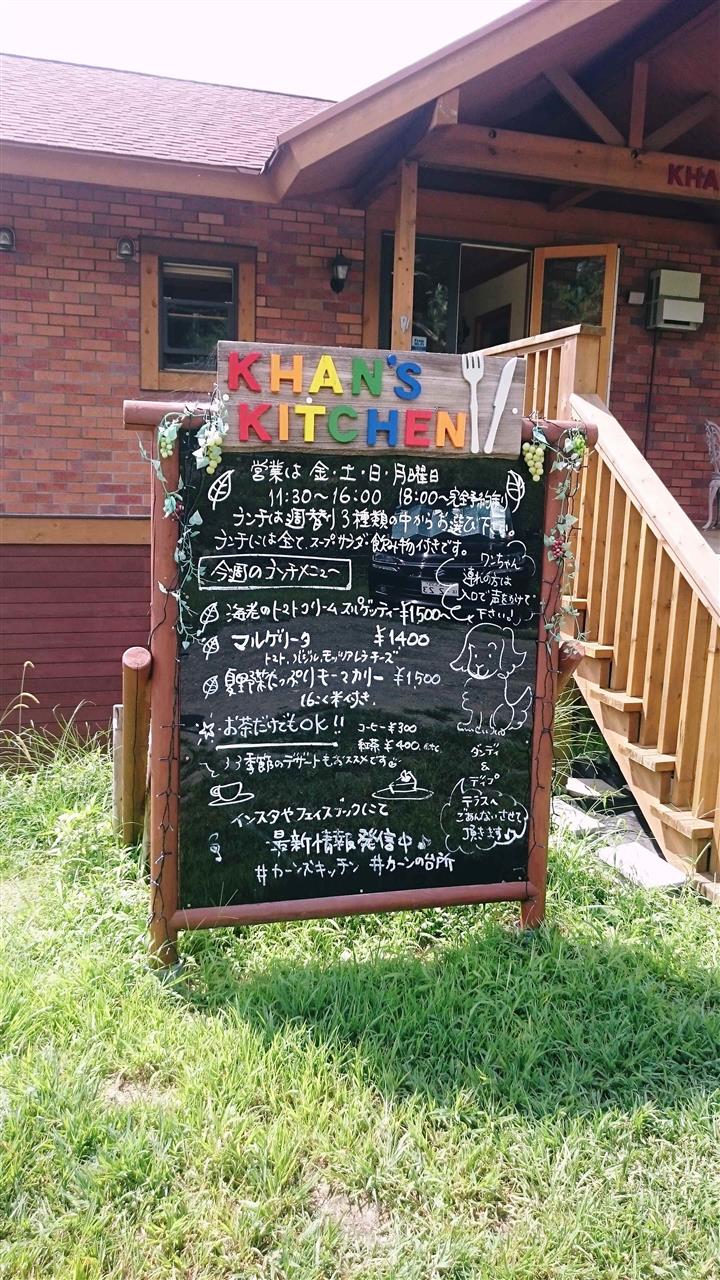 KHA
KHAN'S
KITCHEN
営業は 金・土・日・月曜日
11:30〜16:00 18:00〜完全予約制
ランチは週替り3種類の中からお選び下さい。
ランチには全て、スープサラダ・飲み物付きです。
今週のランチメニュー
ワンちゃん
連れの方は
入口で声をかけて
下さい♪
海老のトマトクリームスパゲッティー ¥1500〜
マルゲリータ ¥1400
トマト、バジル、モッツァレラチーズ
夏野菜たっぷりキーマカリー ¥1,500
16こく米付き
お茶だけでもOK!!
コーヒー ¥300
紅茶 ¥400
季節のデザートもおススメです
ダンディ
&
ディップ
テラスへ
ごあんないさせて
頂きます♪
インスタやフェイスブックにて
最新情報発信中♪
#カーンズキッチン #カーンの台所